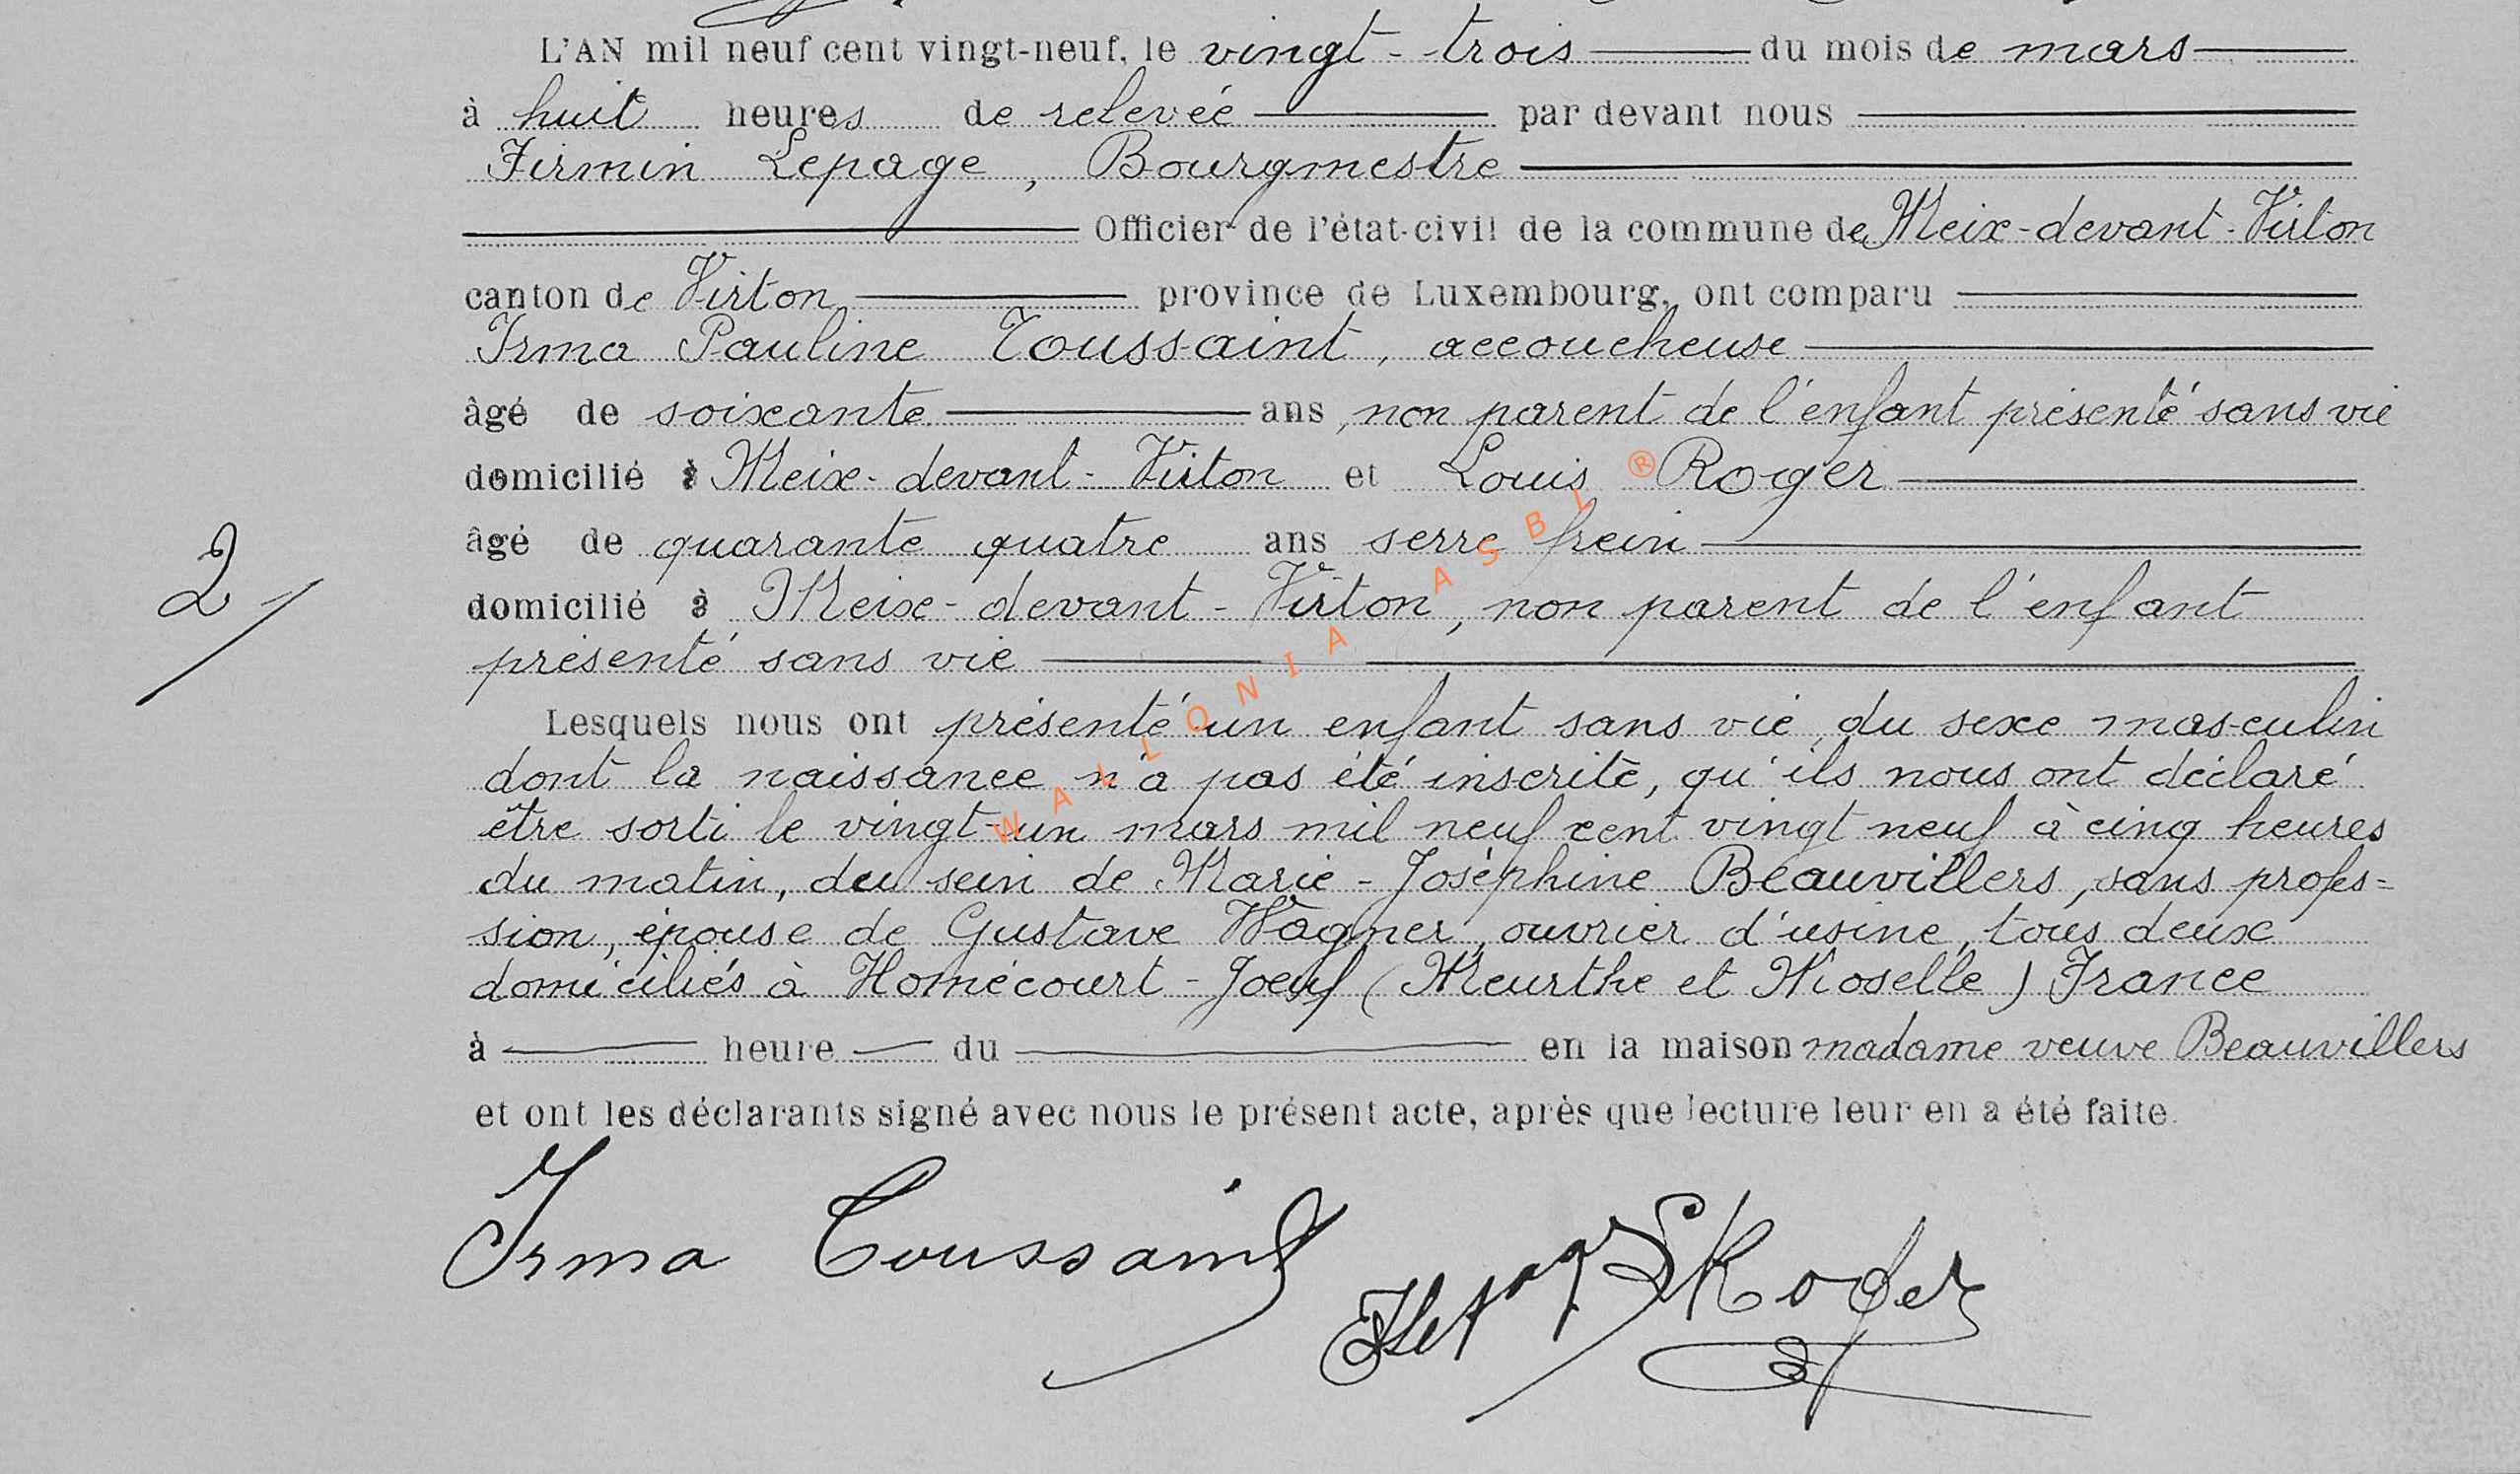 L'AN mil neuf cent vingt-neuf, le vingt-trois du mois de mars
à huit heures de relevée par devant nous
Firmin Lepage, Bourgmestre
Officier de l'état-civil de la commune de Meix-devant-Virton
canton de Virton province de Luxembourg, ont comparu
Irma Pauline Toussaint, accoucheuse
âgé de soixante ans, non parent de l'enfant présenté sans vie
domicilié à Meix-devant-Virton et Louis Roger
âgé de quarante quatre ans serre frein
domicilié à Meix-devant-Virton, non parent de l'enfant
présenté sans vie
2/
Lesquels nous ont présenté un enfant sans vie, du sexe masculin
dont la naissance n'a pas été inscrite, qu'ils nous ont déclaré
être sorti le vingt-un mars mil neuf cent vingt neuf à cinq heures
du matin, du sein de Marie-Joséphine Beauvillers, sans profes=
sion, épouse de Gustave Wagner, ouvrier d'usine, tous deux
domiciliés à Homécourt-Joeuf (Meurthe et Moselle) France
à heure du en la maison madame veuve Beauvillers
et ont les déclarants signé avec nous le présent acte, après que lecture leur en a été faite.
Irma Toussaint
L Roger
WALLONIA ASBL ®